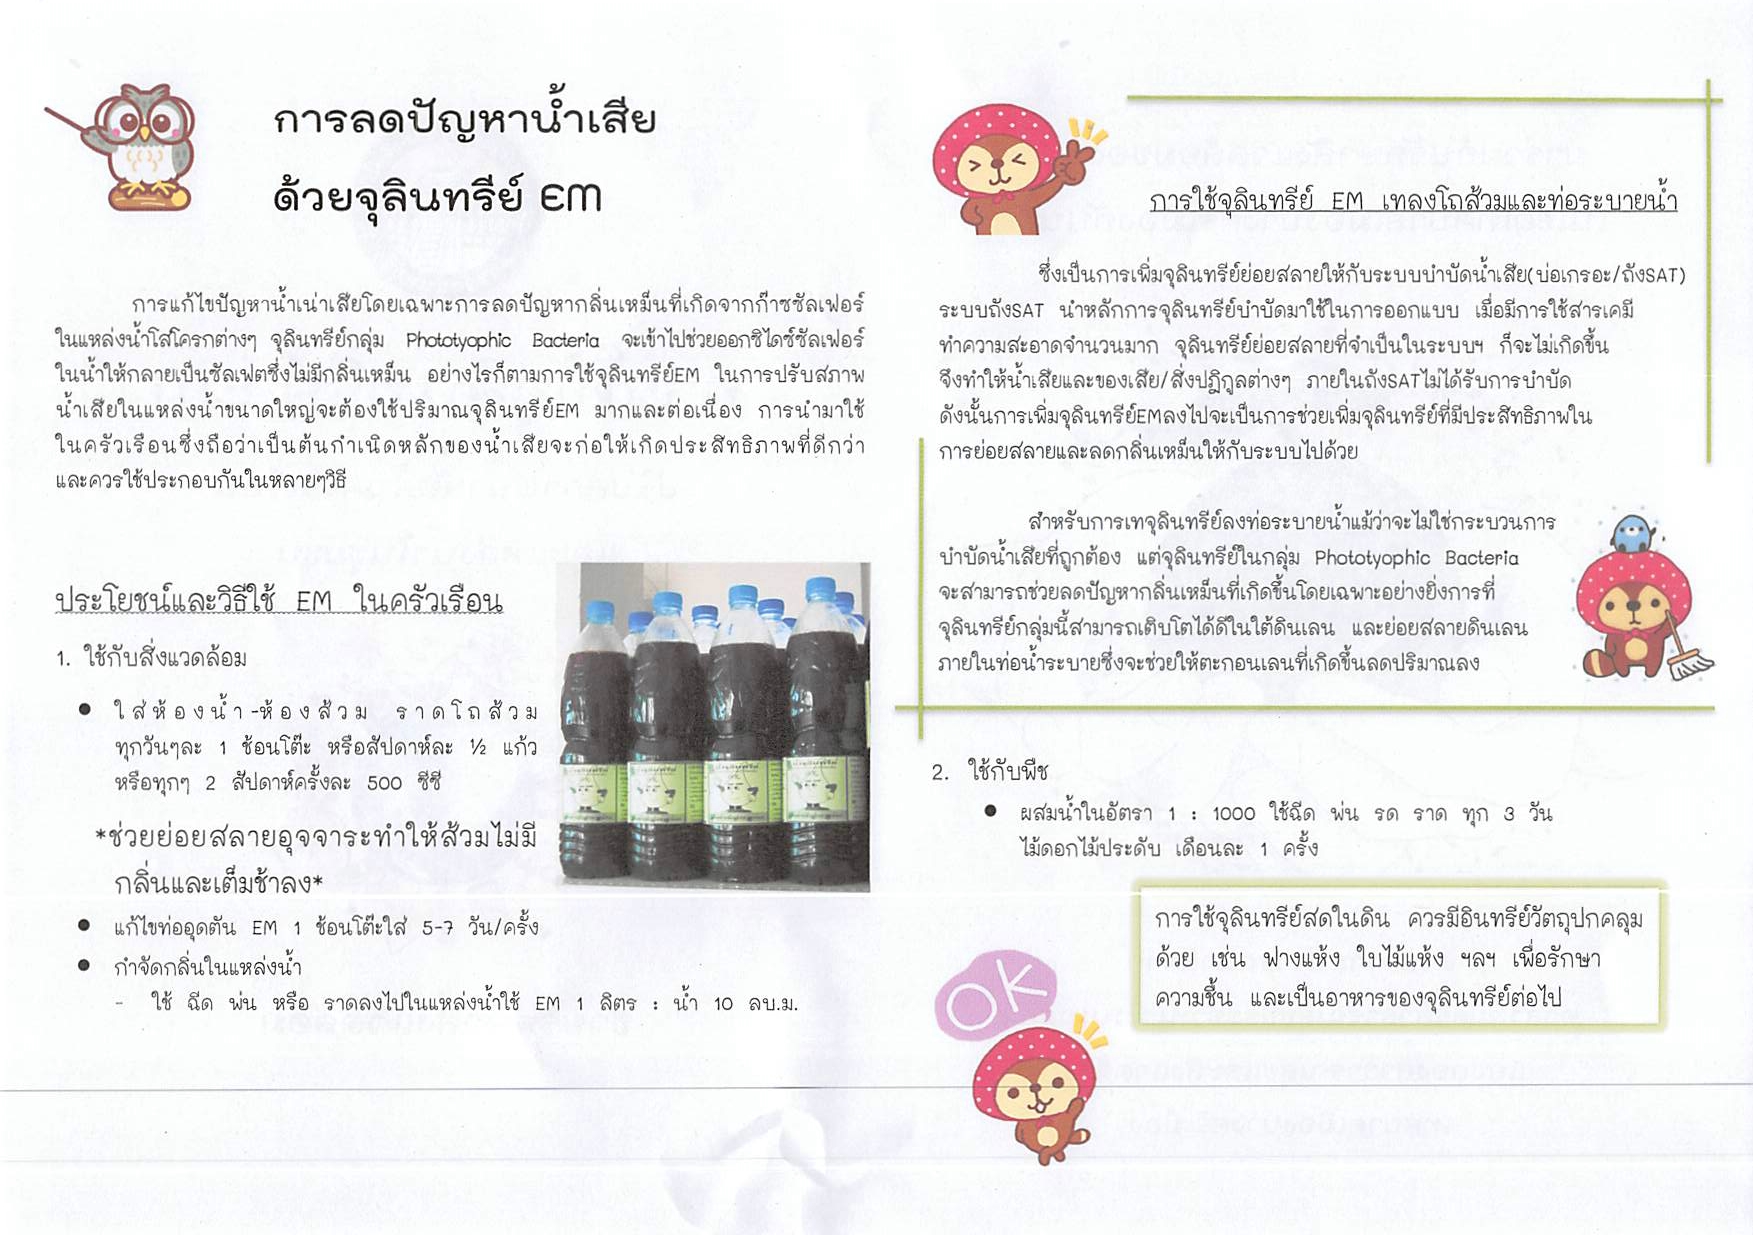 การลดปัญหาน้ำเสีย
ด้วยจุลินทรีย์ EM
การแก้ไขปัญหาน้ำเน่าเสียโดยเฉพาะการลดปัญหากลิ่นเหม็นที่เกิดจากก๊าซซัลเฟอร์
ในแหล่งน้ำโสโครกต่างๆ จุลินทรีย์กลุ่ม Phototyophic Bacteria จะเข้าไปช่วยออกซิไดซ์ซัลเฟอร์
ในน้ำให้กลายเป็นซัลเฟตซึ่งไม่มีกลิ่นเหม็น อย่างไรก็ตามการใช้จุลินทรีย์EM ในการปรับสภาพ
น้ำเสียในแหล่งน้ำขนาดใหญ่จะต้องใช้ปริมาณจุลินทรีย์EM มากและต่อเนื่อง การนำมาใช้
ในครัวเรือนซึ่งถือว่าเป็นต้นกำเนิดหลักของน้ำเสียจะก่อให้เกิดประสิทธิภาพที่ดีกว่า
และควรใช้ประกอบกันในหลายๆวิธี
ประโยชน์และวิธีใช้ EM ในครัวเรือน
1. ใช้กับสิ่งแวดล้อม
● ใส่ห้องน้ำ-ห้องส้วม ราดโถส้วม
ทุกวันๆละ 1 ช้อนโต๊ะ หรือสัปดาห์ละ ½ แก้ว
หรือทุกๆ 2 สัปดาห์ครั้งละ 500 ซีซี
*ช่วยย่อยสลายอุจจาระทำให้ส้วมไม่มี
กลิ่นและเต็มช้าลง*
● แก้ไขท่ออุดตัน EM 1 ช้อนโต๊ะใส่ 5-7 วัน/ครั้ง
● กำจัดกลิ่นในแหล่งน้ำ
- ใช้ ฉีด พ่น หรือ ราดลงไปในแหล่งน้ำใช้ EM 1 ลิตร : น้ำ 10 ลบ.ม.
การใช้จุลินทรีย์ EM เทลงโถส้วมและท่อระบายน้ำ
ซึ่งเป็นการเพิ่มจุลินทรีย์ย่อยสลายให้กับระบบบำบัดน้ำเสีย(บ่อเกรอะ/ถังSAT)
ระบบถังSAT นำหลักการจุลินทรีย์บำบัดมาใช้ในการออกแบบ เมื่อมีการใช้สารเคมี
ทำความสะอาดจำนวนมาก จุลินทรีย์ย่อยสลายที่จำเป็นในระบบฯ ก็จะไม่เกิดขึ้น
จึงทำให้น้ำเสียและของเสีย/สิ่งปฎิกูลต่างๆ ภายในถังSATไม่ได้รับการบำบัด
ดังนั้นการเพิ่มจุลินทรีย์EMลงไปจะเป็นการช่วยเพิ่มจุลินทรีย์ที่มีประสิทธิภาพใน
การย่อยสลายและลดกลิ่นเหม็นให้กับระบบไปด้วย
สำหรับการเทจุลินทรีย์ลงท่อระบายน้ำแม้ว่าจะไม่ใช่กระบวนการ
บำบัดน้ำเสียที่ถูกต้อง แต่จุลินทรีย์ในกลุ่ม Phototyophic Bacteria
จะสามารถช่วยลดปัญหากลิ่นเหม็นที่เกิดขึ้นโดยเฉพาะอย่างยิ่งการที่
จุลินทรีย์กลุ่มนี้สามารถเติบโตได้ดีในใต้ดินเลน และย่อยสลายดินเลน
ภายในท่อน้ำระบายซึ่งจะช่วยให้ตะกอนเลนที่เกิดขึ้นลดปริมาณลง
2. ใช้กับพืช
● ผสมน้ำในอัตรา 1 : 1000 ใช้ฉีด พ่น รด ราด ทุก 3 วัน
ไม้ดอกไม้ประดับ เดือนละ 1 ครั้ง
การใช้จุลินทรีย์สดในดิน ควรมีอินทรีย์วัตถุปกคลุม
ด้วย เช่น ฟางแห้ง ใบไม้แห้ง ฯลฯ เพื่อรักษา
ความชื้น และเป็นอาหารของจุลินทรีย์ต่อไป
OK